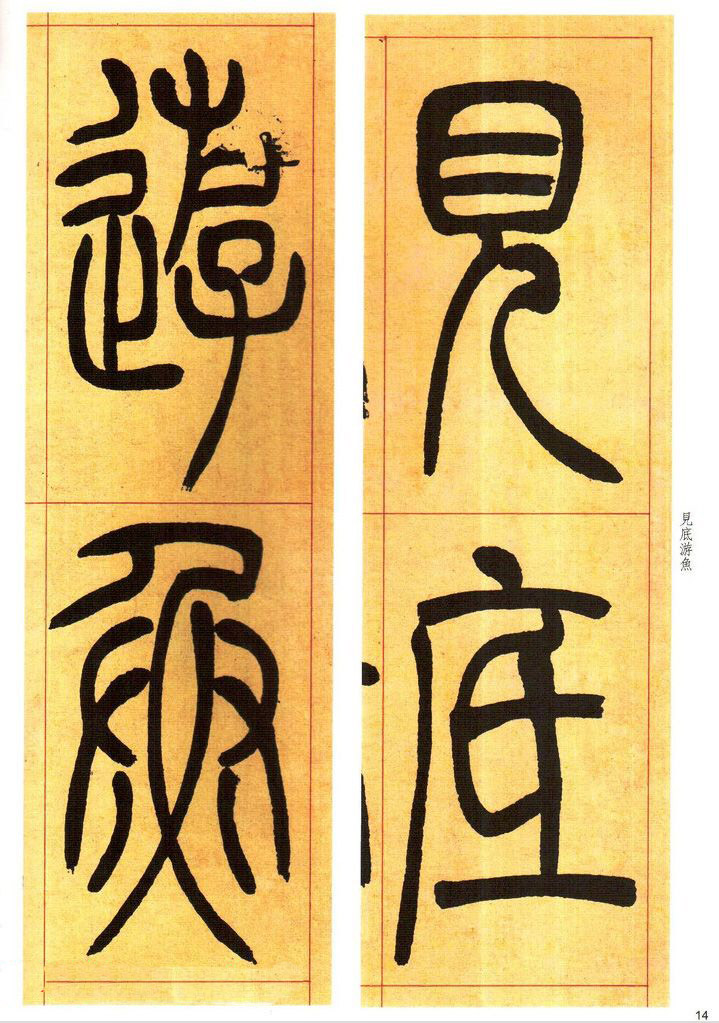 見底
遊魚
見底游魚
14